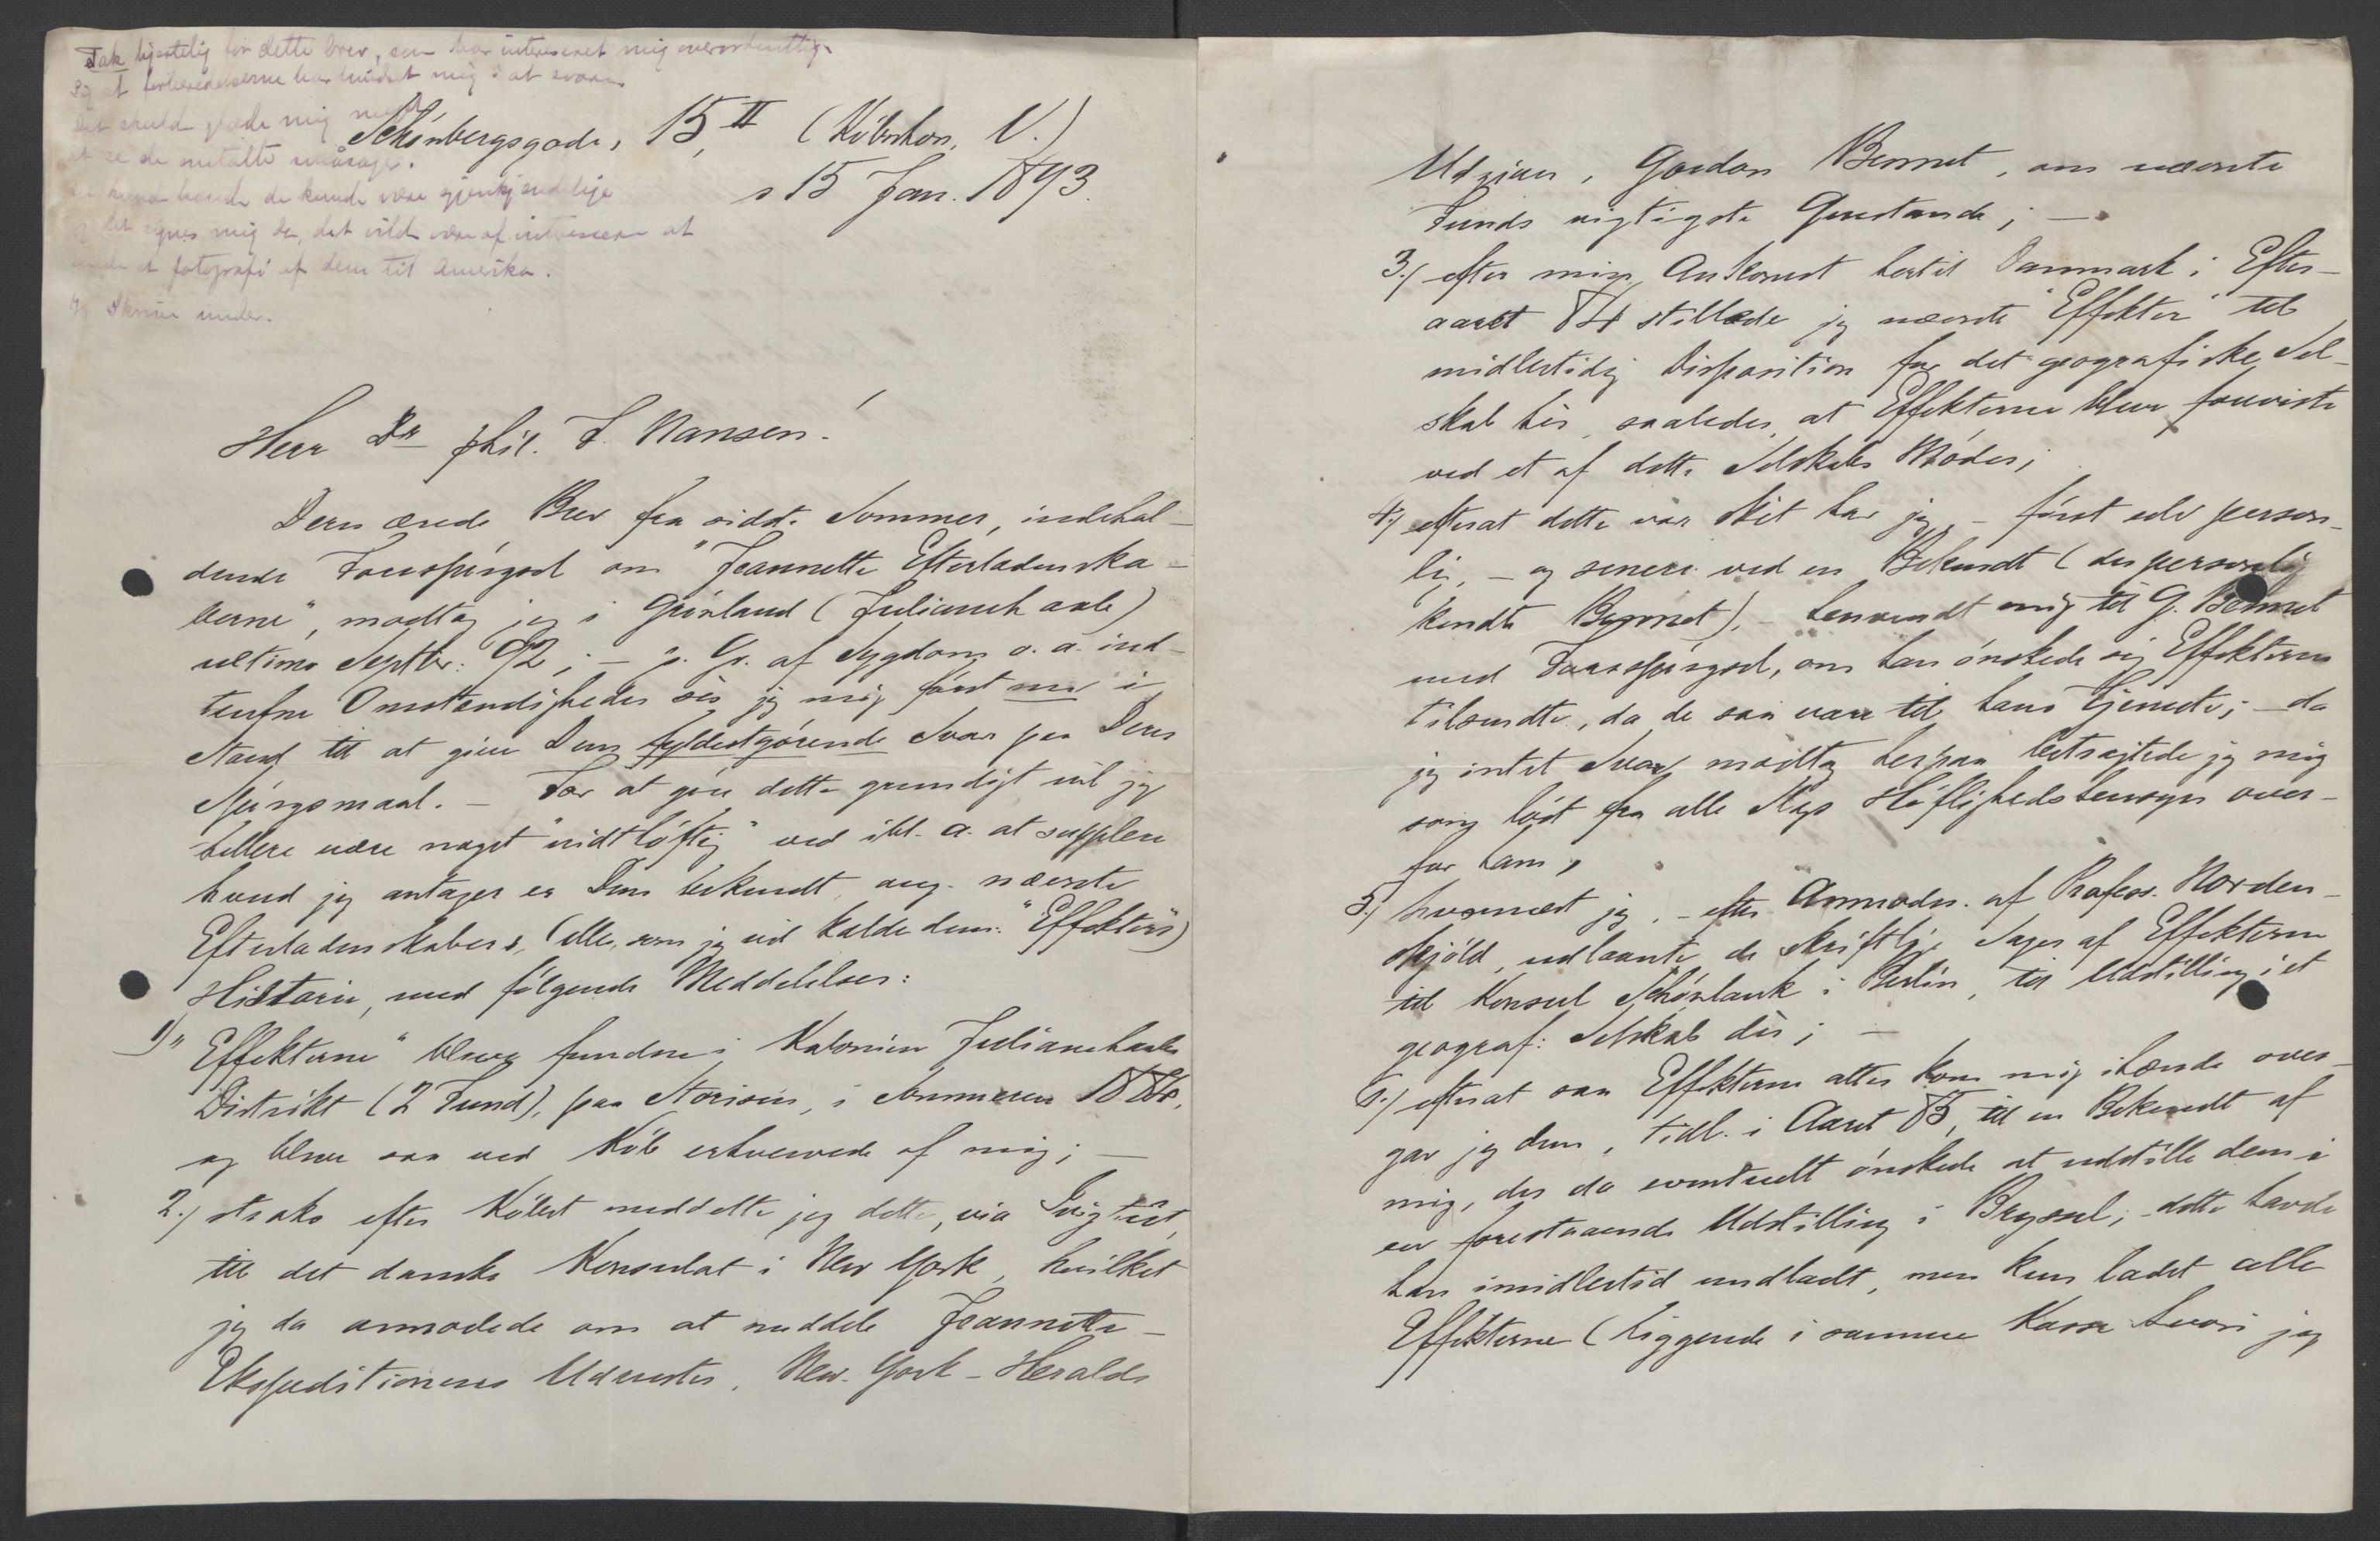 Tak hjertelig for dette brev, som har interesseret mig overordentlig.
at forberedelserne har hindret mig i at svare
skulde glæde mig meget
at se de omtalte småsager.
de kunde være gjenkjendelige
det synes mig da, det vilde være af interesse at
sende et fotografi af dem til Amerika.
Skrive under.
Schönbergsgade, 15, II (Köbnhvn, V.)
s 15 Jan. 1893.
Herr Dr phil. F. Nansen!
Deres ærede Brev fra sidste Sommer, indehol-
dende Forespörgsel om "Jeannette Efterladenska-
berne", modtog jeg i Grönland (Julianehaab)
ultimo Septbr: 92; – p. Gr. af Sygdom o. a. ind-
trufne Omstændigheder sér jeg mig först nu i
Stand til at give Dem fyldestgörende Svar paa Deres
Spörgsmaal. – For at göre dette grundigt vil jeg
hellere være noget "vidtlöftig" ved bl. a. at supplere
hvad jeg antager er Dem bekendt ang. nævnte
Efterladenskabers, (eller, som jeg vil kalde dem: "Effekters")
Historie, med fölgende Meddelelser:
1) "Effekterne" bleve fundne i Kolonien Julianehaabs
Distrikt (2 Fund), paa Storisen, i Sommeren 1884,
og bleve saa ved Köb erhvervede af mig; –
2.) straks efter Köbet meddelte jeg dette, via Ivigtût,
til det danske Konsulat i New York, hvilket
jeg da anmodede om at meddele Jeannette-
Ekspeditionens Udruster, New-York-Heralds
Udgiver, Gordon Bennet, om nævnte
Funds vigtigste Genstande; –
3.) efter min Ankomst hertil Danmark i Efter-
aaret 84 stillede jeg nævnte "Effekter" til
midlertidig Disposition for det geografiske Sel-
skab hér, saaledes, at Effekterne bleve foreviste
ved et af dette Selskabs Möder;
4.) efterat dette var sket har jeg – först selv person-
lig, – og senere ved en Bekendt (der personlig
kendte Bennet), – henvendt mig til G. Bennet
med Forespörgsel, om han önskede sig Effekterne
tilsendte, da de saa vare til hans Tjeneste; – da
jeg intet Svar modtog herpaa betragtede jeg mig
som löst fra alle Slags Höflighedshensyn over-
for ham;
5.) hvornæst jeg, – efter Anmodn. af Profess. Norden-
skjöld, udlaante de skriftlige Sager af Effekterne
til Konsul Schönlank i Berlin, til Udstilling i et
geograf: Selskab dér; –
6.) efterat saa Effekterne atter kom mig ihænde over-
gav jeg dem, tidl. i Aaret 85, til en Bekendt af
mig, der da eventuelt önskede at udstille dem i
en forestaaende Udstilling i Bryssel; – dette havde
han imidlertid undladt, men kun ladet alle
Effekterne (liggende i samme Kasse hvori jeg